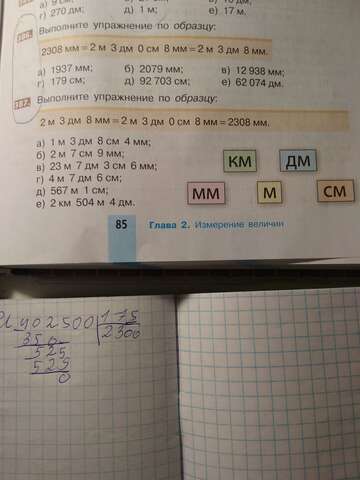 г) 270 дм; д) 1 м; в) 17 м.
386. Выполните упражнение по образцу:
2308 мм = 2 м 3 дм 0 см 8 мм = 2 м 3 дм 8 мм.
а) 1937 мм; б) 2079 мм; в) 12 938 мм;
г) 179 см; д) 92 703 см; е) 62 074 дм.
387. Выполните упражнение по образцу:
2 м 3 дм 8 мм = 2 м 3 дм 0 см 8 мм = 2308 мм.
а) 1 м 3 дм 8 см 4 мм;
б) 2 м 7 см 9 мм;
в) 23 м 7 дм 3 см 6 мм;
г) 4 м 7 дм 6 см;
д) 567 м 1 см;
е) 2 км 504 м 4 дм.
КМ ДМ
ММ М СМ
85 Глава 2. Измерение величин
402500 175
350 2300
525
525
0